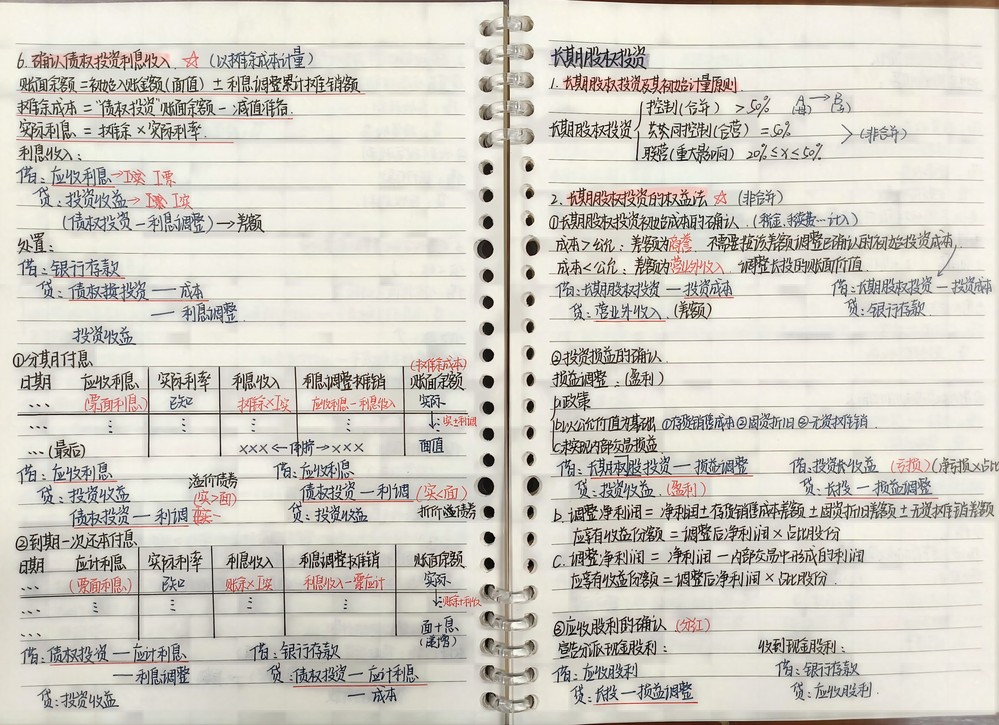 6. 确认债权投资利息收入 ☆ (以摊余成本计量)
账面余额 = 初始入账金额(面值) ± 利息调整累计摊销额
摊余成本 = "债权投资"账面余额 - 减值准备.
实际利息 = 摊余 × 实际利率.
利息收入:
借: 应收利息 → I票
贷: 投资收益 → I实
(债权投资 — 利息调整) → 差额
处置:
借: 银行存款
贷: 债权投资 — 成本
— 利息调整.
投资收益
①分期付息
(摊余成本)
日期 应收利息 实际利率 利息收入 利息调整摊销 账面余额
... (票面利息) 已知 摊余×I实 应收利息-利息收入 实际
... ⋮ ⋮ ⋮ ⋮ ↓实±利调
... (最后) ××× ← 倒挤 → ××× 面值
借: 应收利息 溢价债券 借: 应收利息
贷: 投资收益 (实>面) 债权投资 — 利调 (实<面)
债权投资 — 利调 贷: 投资收益 折价债券
②到期一次还本付息
日期 应计利息 实际利率 利息收入 利息调整摊销 账面余额
... (票面利息) 已知 账余×I实 利息收入-票应计 实际
... ⋮ ⋮ ⋮ ⋮ ↓账余+利收
... 面+息
(递增)
借: 债权投资 — 应计利息 借: 银行存款
— 利息调整 贷: 债权投资 — 应计利息
贷: 投资收益 — 成本
长期股权投资
1. 长期股权投资及其初始计量原则
控制(合并) >50% A(母) → B(子)
长期股权投资 共同控制(合营) = 50% > (非合并)
联营(重大影响) 20%≤x≤50%
2. 长期股权投资的权益法 ☆ (非合并)
①长期股权投资初始成本的确认. (税金、手续费…计入)
成本>公允: 差额为商誉 不需要按该差额调整已确认的初始投资成本
成本<公允: 差额为营业外收入 调整长投的账面价值.
借: 长期股权投资 — 投资成本 借: 长期股权投资 — 投资成本
贷: 营业外收入 (差额) 贷: 银行存款.
②投资损益的确认.
损益调整. (盈利)
a.政策
b.以公允价值为基础 ①存货销售成本 ②固资折旧 ③无资摊销.
c.未实现内部交易损益
借: 长期股权投资 — 损益调整 借: 投资收益 (亏损) (净亏损×占比
贷: 投资收益 (盈利) 贷: 长投 — 损益调整
b. 调整净利润 = 净利润 ± 存货销售成本差额 ± 固资折旧差额 ± 无资摊销差额
应享有收益份额 = 调整后净利润 × 占比股份
C. 调整净利润 = 净利润 - 内部交易中形成的利润
应享有收益份额 = 调整后净利润 × 占比股份.
③应收股利的确认 (分红)
宣告分派现金股利: 收到现金股利:
借: 应收股利 借: 银行存款
贷: 长投 — 损益调整 贷: 应收股利.